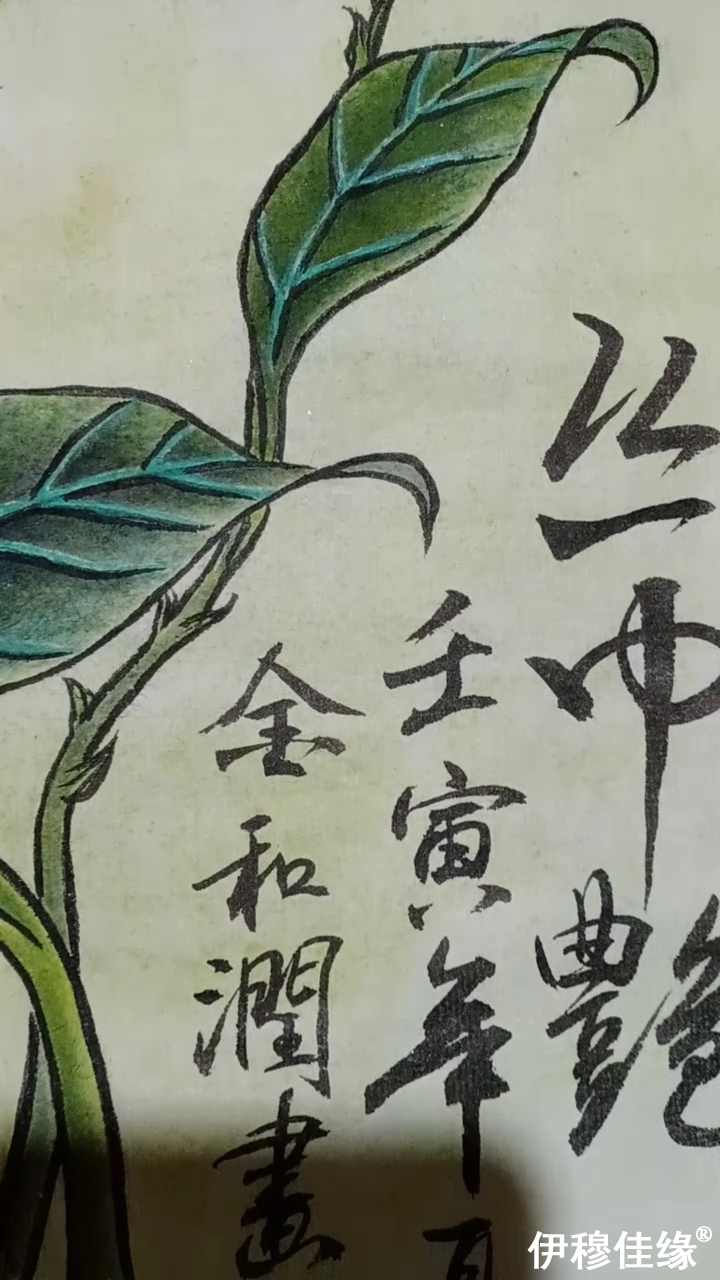 丛中艷
壬寅年
金和潤畫
伊穆佳缘®